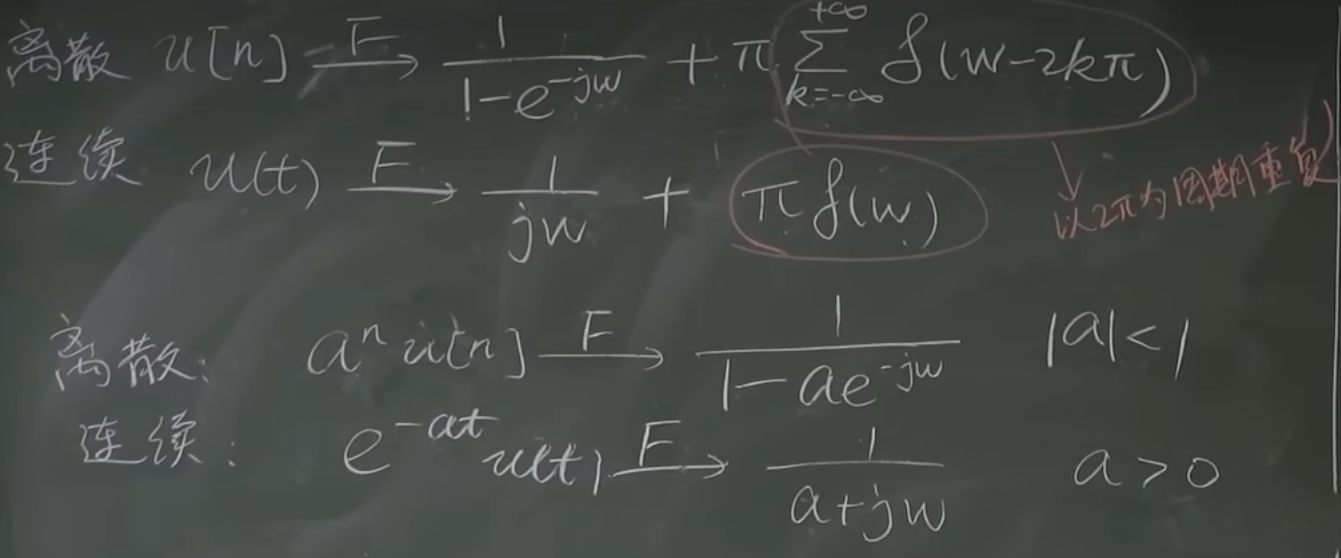 离散 u[n] —F→ 1/(1-e^{-jw}) + π∑_{k=-∞}^{+∞} δ(w-2kπ)
连续 u(t) —F→ 1/(jw) + πδ(w)
以2π为周期重复
离散: a^n u[n] —F→ 1/(1-ae^{-jw}) |a|<1
连续: e^{-at} u(t) —F→ 1/(a+jw) a>0